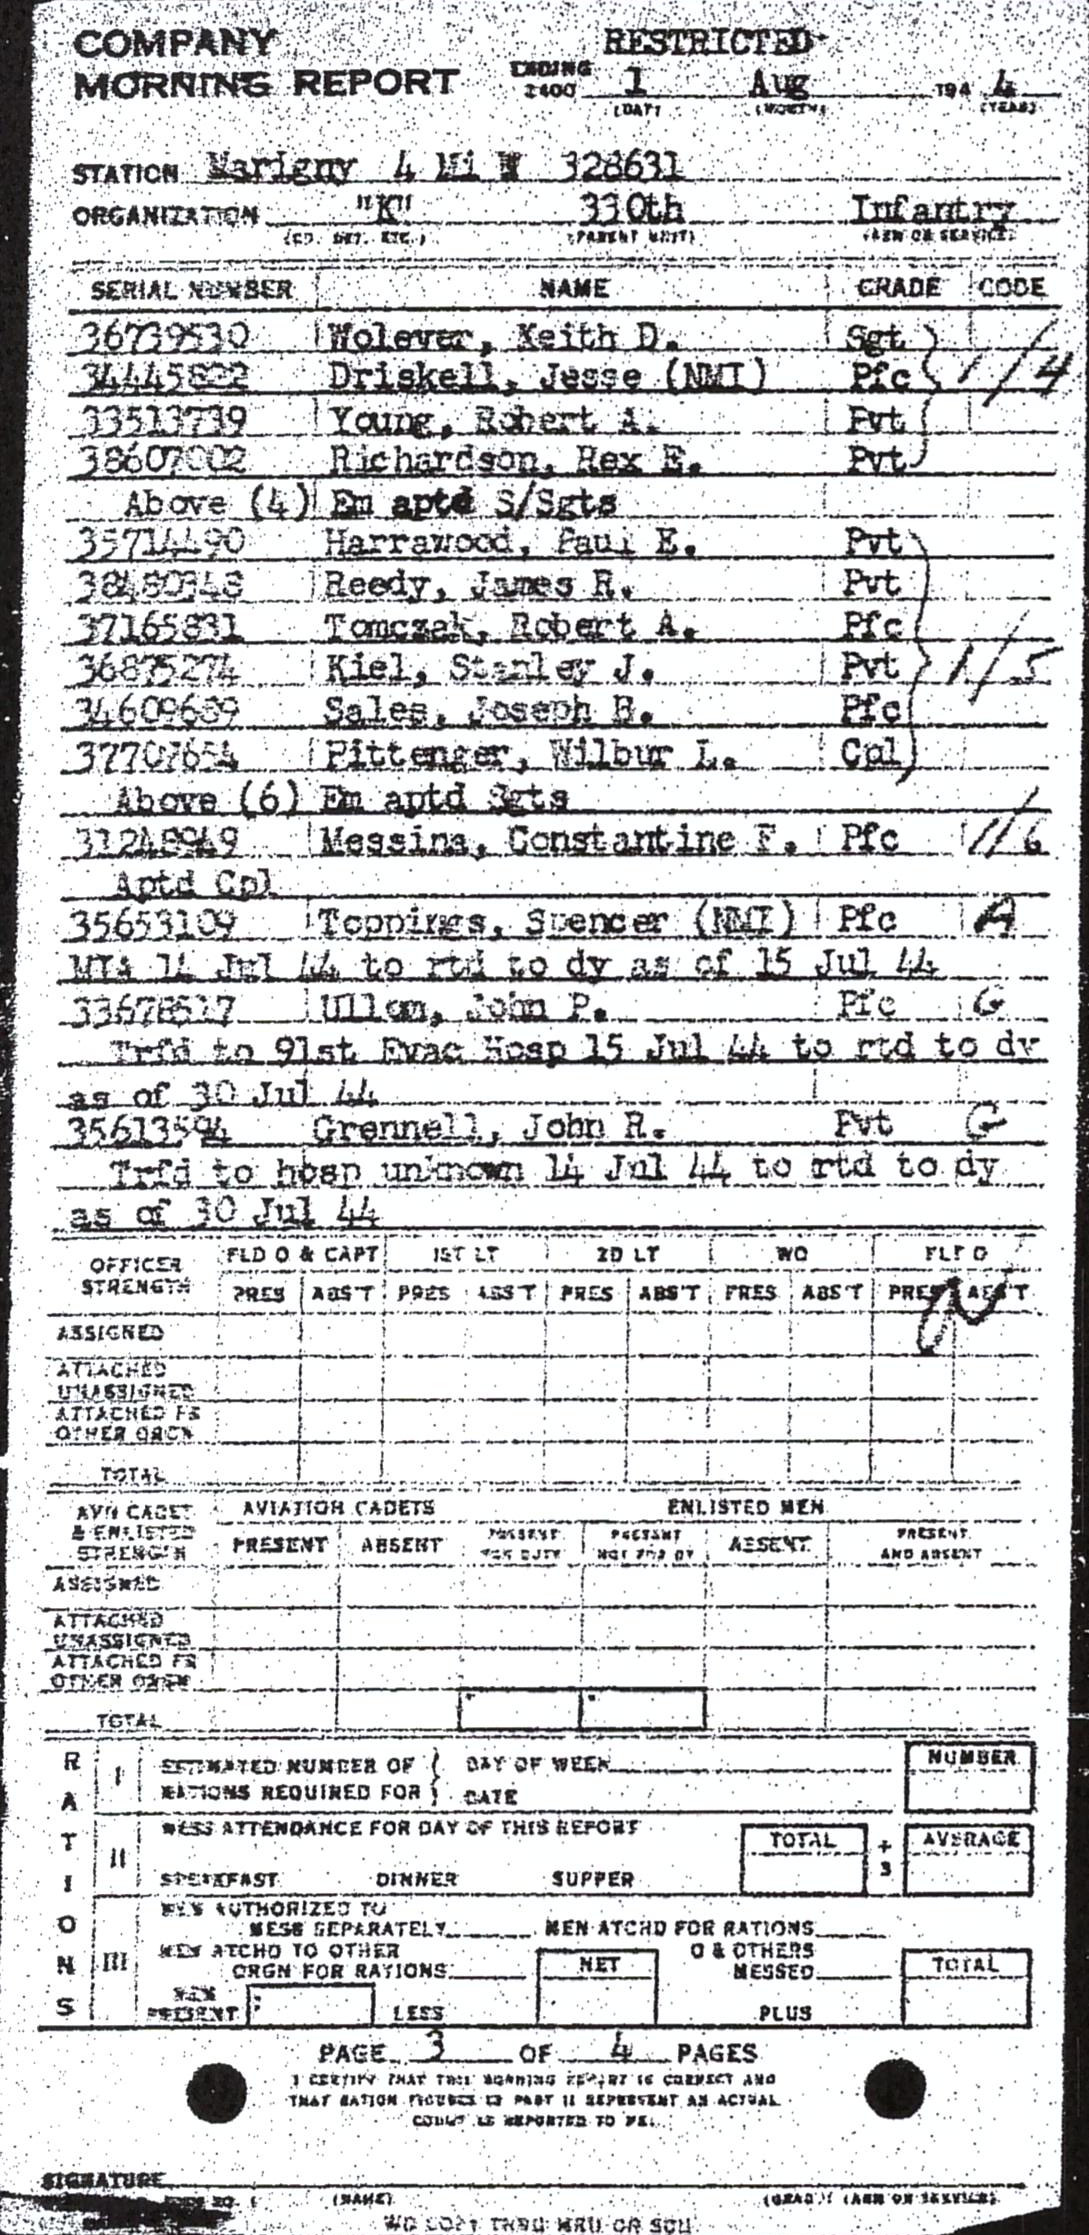 COMPANY RESTRICTED
MORNING REPORT ENDING 2400 1 Aug 194 4
(DAY) (MONTH) (YEAR)
STATION Marigny 4 Mi W 328631
ORGANIZATION "K" 330th Infantry
(CO. DET. ETC.) (PARENT UNIT) (ARM OR SERVICE)
SERIAL NUMBER NAME GRADE CODE
36739530 Wolever, Keith D. Sgt
34445822 Driskell, Jesse (NMI) Pfc 1/4
33513739 Young, Robert A. Pvt
38607002 Richardson, Rex E. Pvt
Above (4) Em aptd S/Sgts
35714490 Harrawood, Paul E. Pvt
38480348 Reedy, James R. Pvt
37165831 Tomczak, Robert A. Pfc
36875274 Kiel, Stanley J. Pvt 1/5
34609689 Sales, Joseph B. Pfc
37707654 Pittenger, Wilbur L. Cpl
Above (6) Em aptd Sgts
31248949 Messina, Constantine F. Pfc 1/6
Aptd Cpl
35653109 Toppings, Spencer (NMI) Pfc A
MIA 14 Jul 44 to rtd to dy as of 15 Jul 44
33678517 Ullom, John P. Pfc G
Trfd to 91st Evac Hosp 15 Jul 44 to rtd to dy
as of 30 Jul 44
35613594 Grennell, John R. Pvt G
Trfd to hosp unknown 14 Jul 44 to rtd to dy
as of 30 Jul 44
OFFICER STRENGTH FLD O & CAPT 1ST LT 2D LT WO FLT O
PRES ABS'T PRES ABS'T PRES ABS'T PRES ABS'T PRES ABS'T
ASSIGNED
ATTACHED
UNASSIGNED
ATTACHED FR
OTHER ORGN
TOTAL
AVN CADET & ENLISTED STRENGTH AVIATION CADETS ENLISTED MEN
PRESENT ABSENT PRESENT FOR DUTY PRESENT NOT FOR DY ABSENT PRESENT AND ABSENT
ASSIGNED
ATTACHED
UNASSIGNED
ATTACHED FR
OTHER ORGN
TOTAL
RATIONS
I ESTIMATED NUMBER OF DAY OF WEEK NUMBER
RATIONS REQUIRED FOR DATE
II MESS ATTENDANCE FOR DAY OF THIS REPORT TOTAL ÷ 3 AVERAGE
BREAKFAST DINNER SUPPER
III MEN AUTHORIZED TO
MESS SEPARATELY MEN ATCHD FOR RATIONS
MEN ATCHD TO OTHER ORGN FOR RATIONS NET O & OTHERS MESSED TOTAL
MEN PRESENT LESS PLUS
PAGE 3 OF 4 PAGES
I CERTIFY THAT THIS MORNING REPORT IS CORRECT AND
THAT RATION FIGURES IN PART II REPRESENT AN ACTUAL
COUNT AS REPORTED TO ME.
SIGNATURE
(NAME) (GRADE) (ARM OR SERVICE)
WD COPY THRU MRU OR SCU